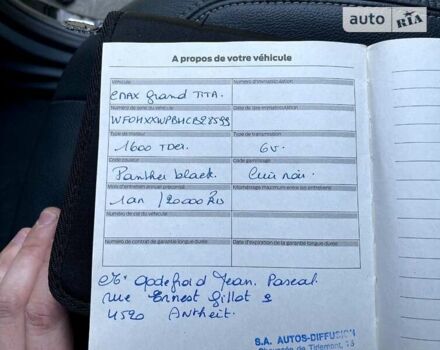 auto RIA
A propos de votre véhicule
Véhicule
Numéro d'immatriculation
CMAX Grand TITA.
Numéro de série du véhicule
Date de 1ère immatriculation
Type de moteur
Type de transmission
1600 TDCi
6v.
Code couleur
Code garnissage
Panther black.
Cuir noir.
Mois d'entretien annuel préconisé
Kilométrage maximum entre les entretiens
1 an / 20 000 km
Numéro de clé du véhicule
Numéro de contrat de garantie longue durée
Date d'expiration de la garantie longue durée
Mr Godefroid Jean. Pascal.
rue Ernest Gillot 2
4520 Antheit.
S.A. AUTOS-DIFFUSION
Chaussée de Tirlemont, 15